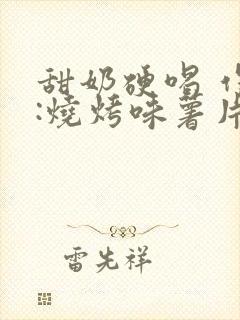 甜奶硬唱
:燒烤味薯片
雷先祥